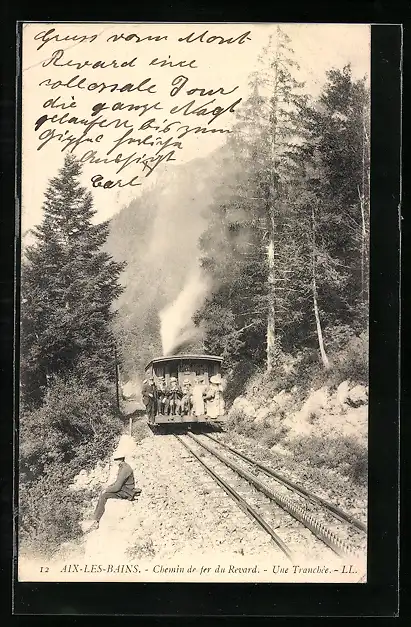 Gruss vorm Mont
Revard eine
collossale Tour
die ganze Nacht
gelaufen bis zum
Gipfel
Aussigt
Carl
12 AIX-LES-BAINS. - Chemin de fer du Revard. - Une Tranchée. - LL.